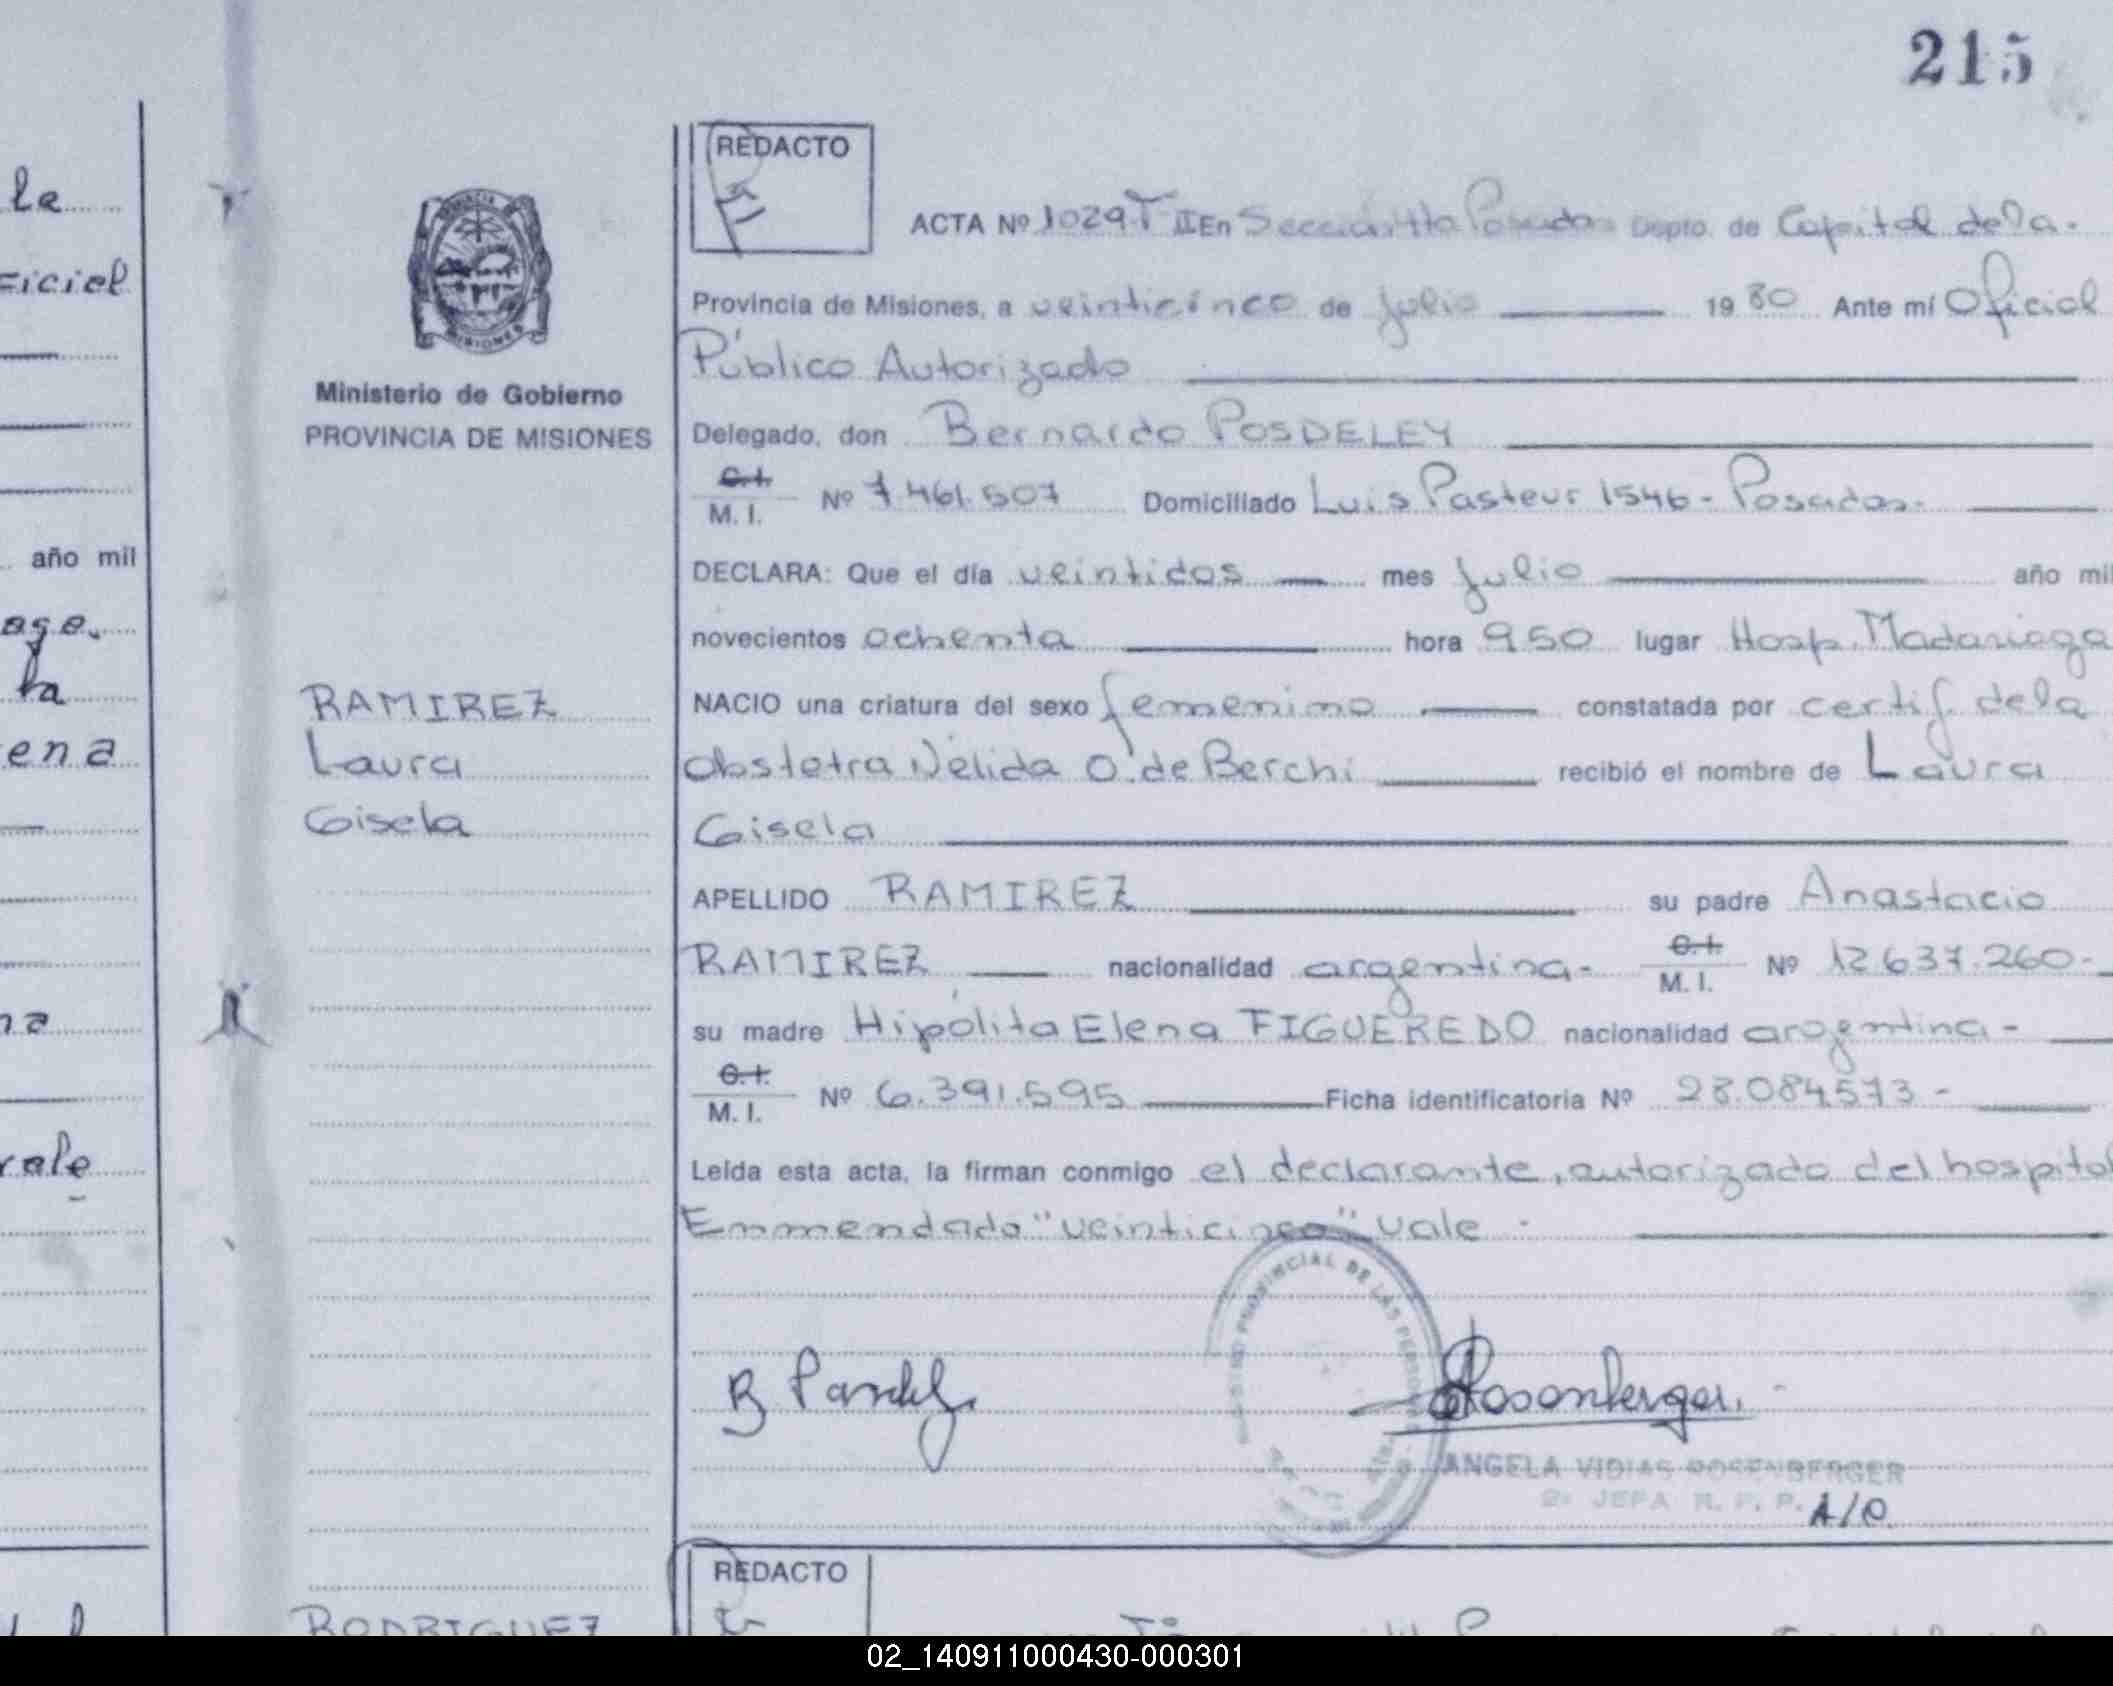 215
le
REDACTO
ACTA Nº 1029 T II En Sección 4ta Posadas Depto. de Capital de la.
Ficial
Provincia de Misiones, a veinticinco de julio 19 80 Ante mí Oficial
Público Autorizado
Ministerio de Gobierno
PROVINCIA DE MISIONES
Delegado, don Bernardo POSDELEY
C.I.
M. I. Nº 7.461.507 Domiciliado Luis Pasteur 1546 - Posadas.
año mil
DECLARA: Que el día veintidos mes julio año mil
novecientos ochenta hora 950 lugar Hosp. Madariaga
la
RAMIREZ
NACIO una criatura del sexo femenino constatada por certif. de la
ena
Laura
obstetra Nélida O. de Berchi recibió el nombre de Laura
Gisela
Gisela
APELLIDO RAMIREZ su padre Anastacio
RAMIREZ nacionalidad argentina- C.I.
M. I. Nº 12.637.260-
na
su madre Hipólita Elena FIGUEREDO nacionalidad argentina-
C.I.
M. I. Nº 6.391.595 Ficha identificatoria Nº 28.084.573-
vale
Leída esta acta, la firman conmigo el declarante, autorizado del hospital
Enmendado "veinticinco" vale
PROVINCIAL DE LAS PERSONAS
Rosenberger.
ANGELA VIDIAS ROSENBERGER
2º JEFA R. P. P. A/C
REDACTO
RODRIGUEZ
02_140911000430-000301